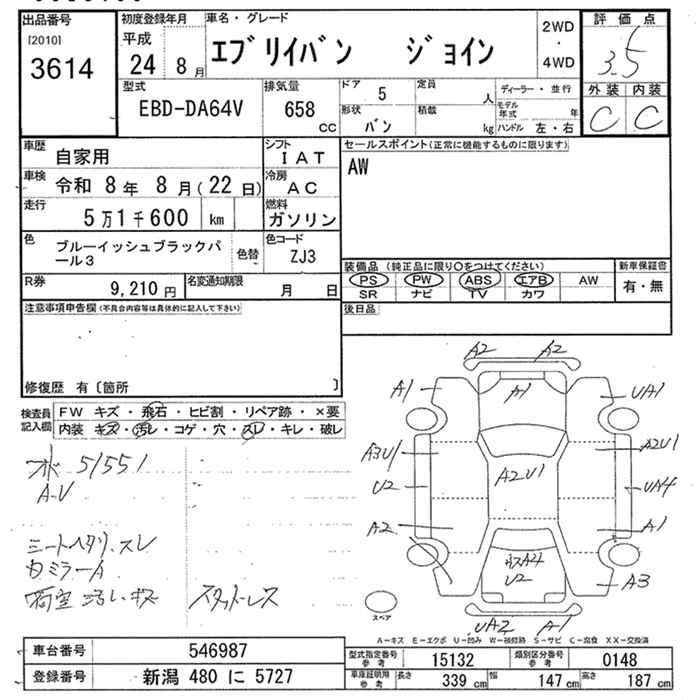 出品番号 初度登録年月 車名・グレード 評価点
[2010] 平成 エブリイバン ジョイン 2WD 3.5
3614 24 8月 ・ 4WD
型式 排気量 ドア 5 定員 人 ディーラー・並行 外装 内装
EBD-DA64V 658 CC 形状 バン 積載 kg モデル年式 年 C C
ハンドル 左・右
車歴 自家用 シフト IAT セールスポイント(正常に機能するものに限ります)
車検 令和 8年 8月(22日) 冷房 AC AW
走行 5万1千600 km 燃料 ガソリン
色 ブルーイッシュブラックパール3 色替 色コード ZJ3
装備品(純正品に限り〇をつけてください) 新車保証書
R券 9,210円 名変通知期限 月 日 PS PW ABS エアB AW 有・無
SR ナビ TV カワ
注意事項申告欄(不具合内容等は具体的に記入して下さい) 後日品
修復歴 有〔箇所 〕
検査員記入欄 FW キズ・飛石・ヒビ割・リペア跡・×要
内装 キズ・汚レ・コゲ・穴・スレ・キレ・破レ
51551
A-V
シートヘタリ.スレ
カミラーA
荷室 汚レ.キズ スタットレス
A2 A2
A1 A1 UA1
A3U1 A2U1
U2 A2U1 UA4
A2 A1
A4
U2 A3
UA2 A1
スペア
A-キズ E-エクボ U-凹み W-補修跡 S-サビ C-腐食 XX-交換済
車台番号 546987 型式指定番号 参考 15132 類別区分番号 参考 0148
登録番号 新潟 480 に 5727 車庫証明用 参考 長さ 339 cm 幅 147 cm 高さ 187 cm